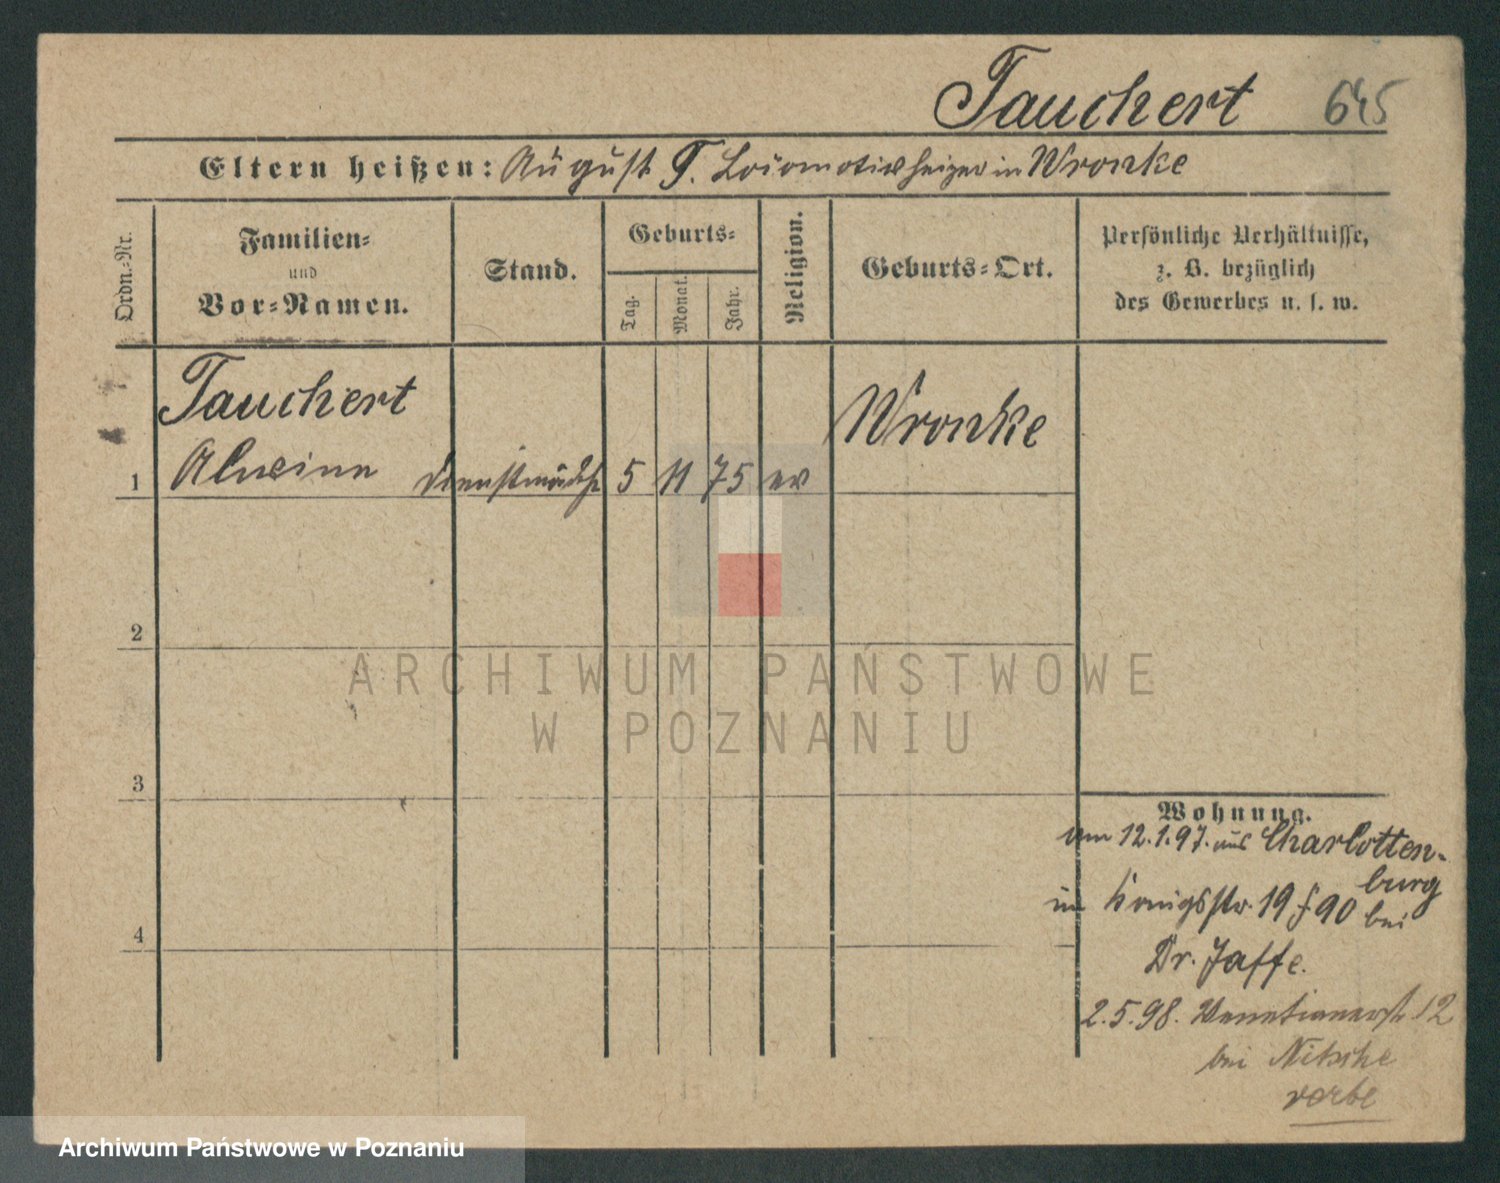 Tauchert 645
Eltern heißen: August T. Locomotivheizer in Wronke
Ordn.-Nr.
Familien-
und
Vor-Namen.
Stand.
Geburts-
Tag.
Monat.
Jahr.
Religion.
Geburts-Ort.
Persönliche Verhältnisse,
z. B. bezüglich
des Gewerbes u. s. w.
Tauchert
Wronke
1 Alwine Dienstmädch 5 11 75 ev
2
ARCHIWUM PAŃSTWOWE
W POZNANIU
3
Wohnung.
am 12.1.97. aus Charlotten-
burg
in Königsstr. 19 f 90 bei
4
Dr. Jaffe.
2.5.98. Venetianerstr 12
bei Nitsche
Archiwum Państwowe w Poznaniu